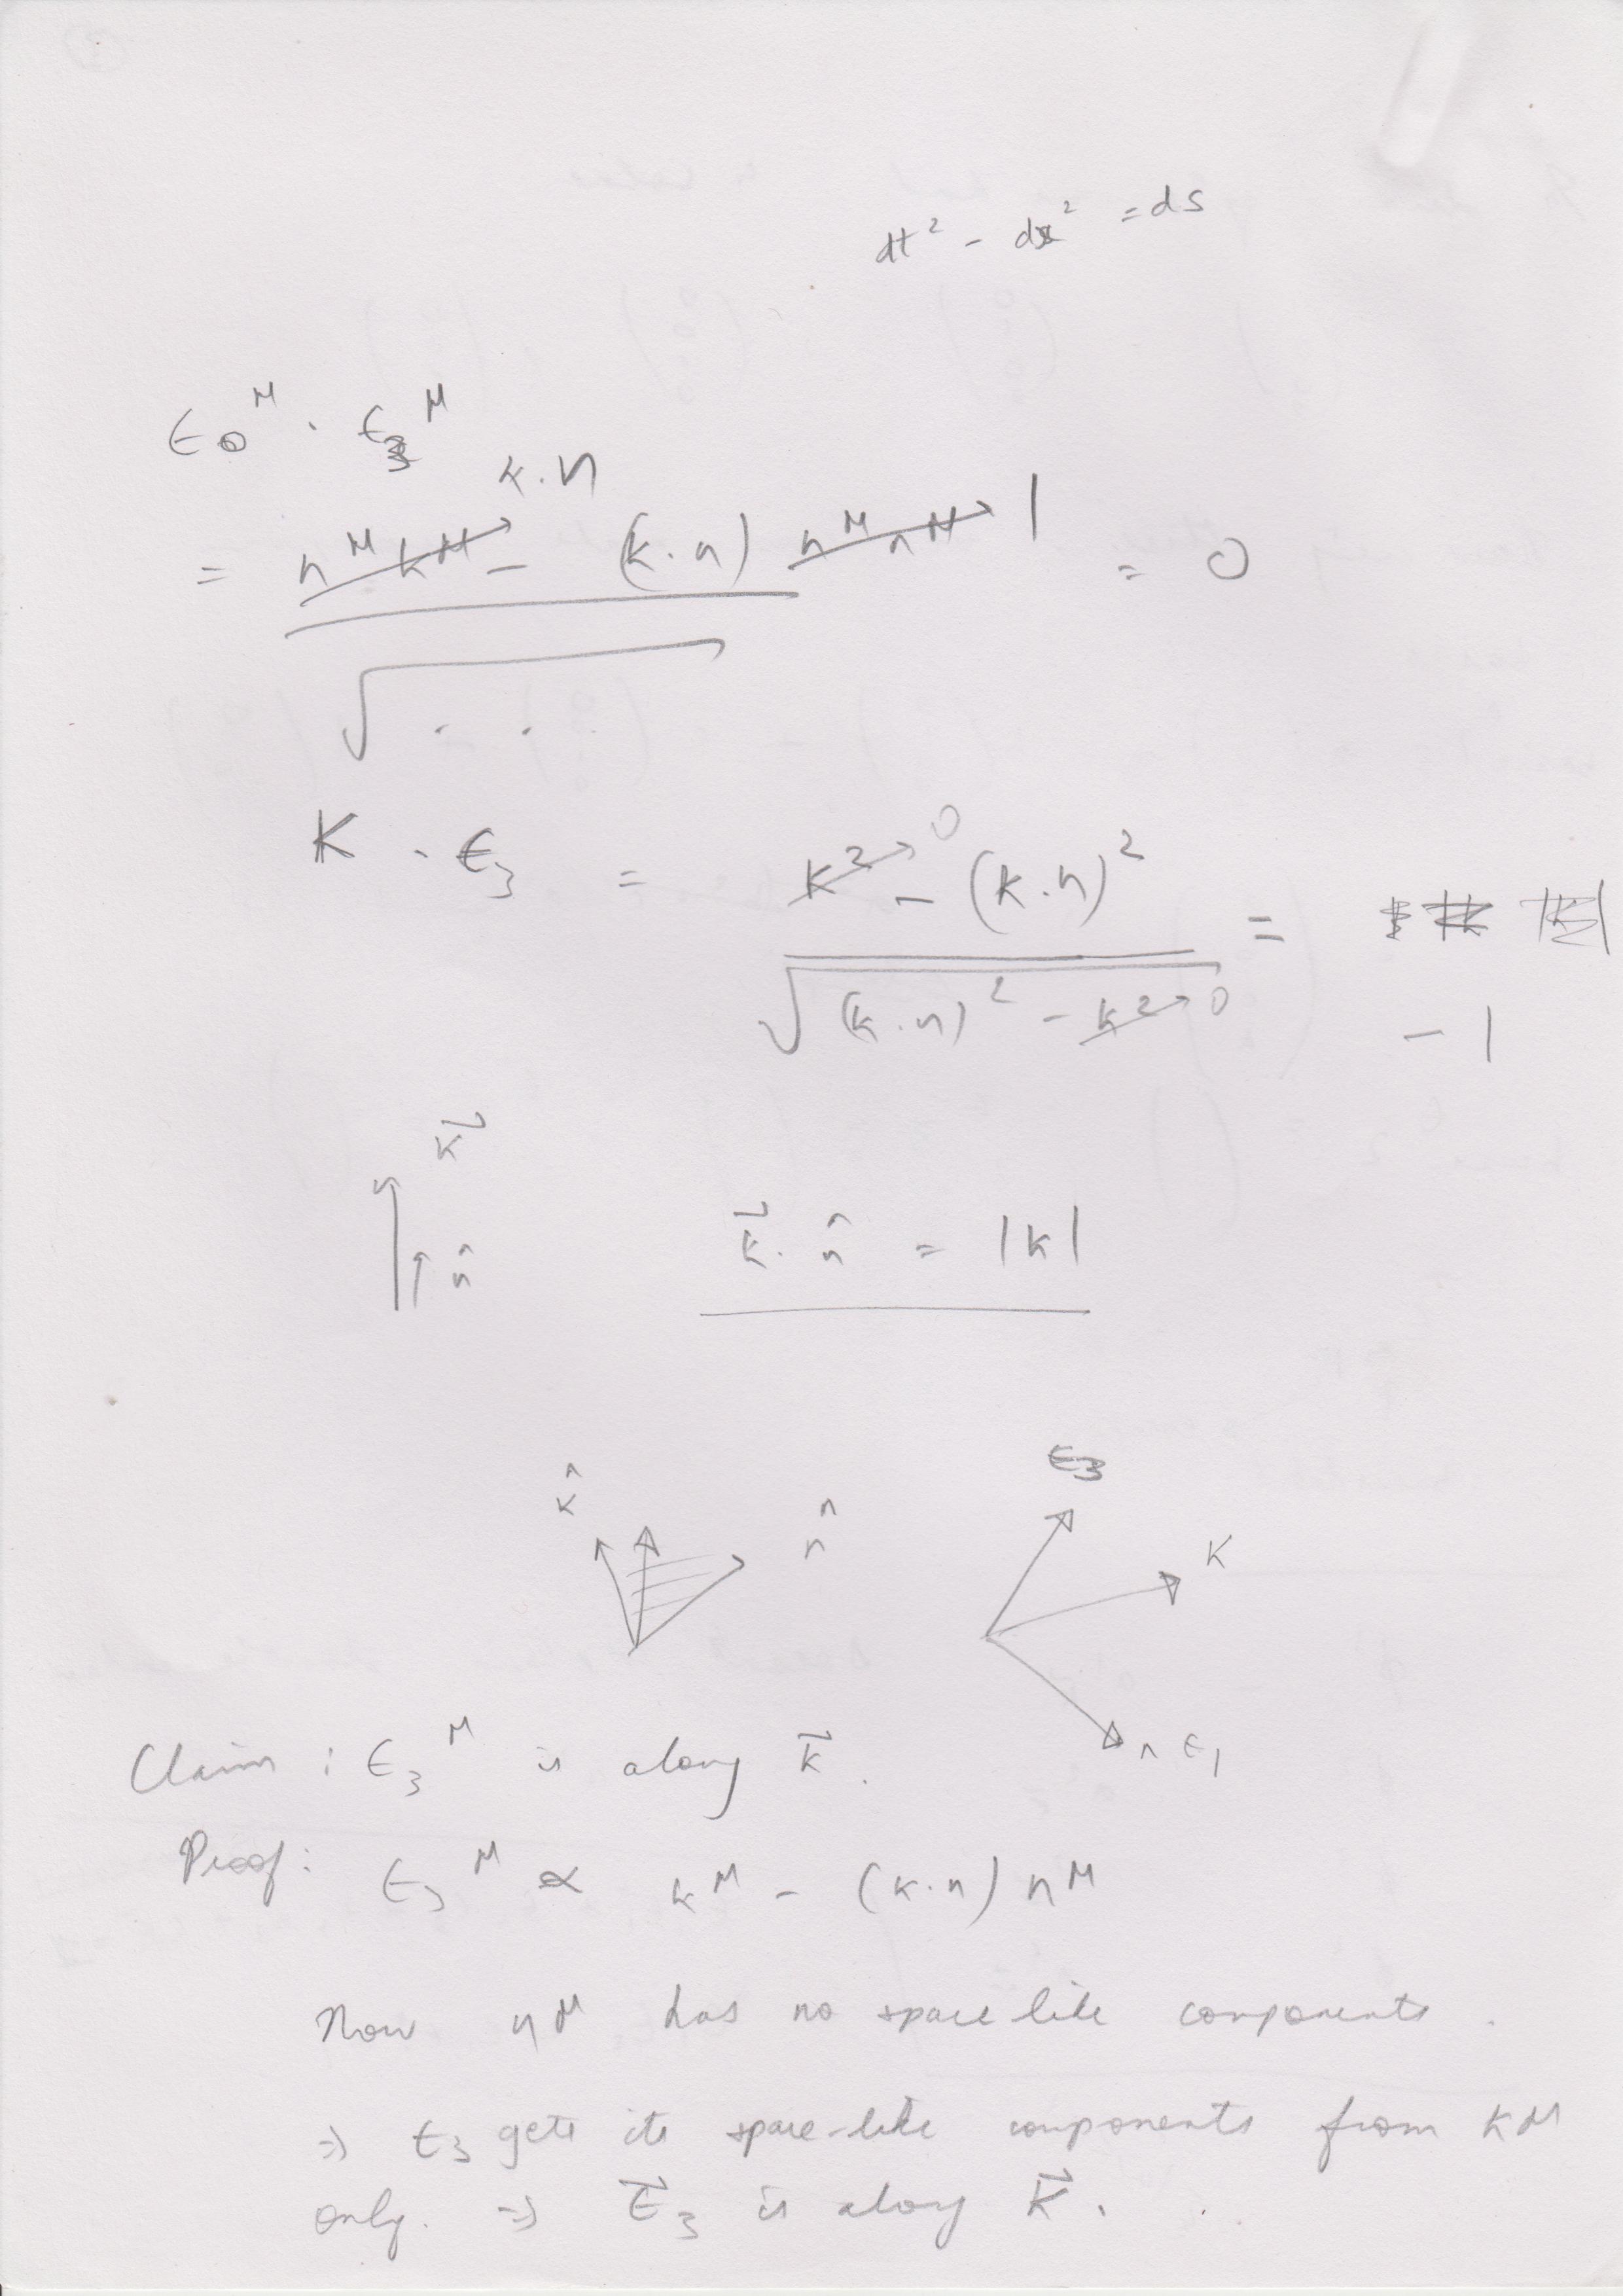 dt² - dx² = ds
ϵ₀^μ · ϵ₃^μ
k.n
= n^μ k^μ - (k.n) n^μ n^μ 1 = 0
√ . .
K · ϵ₃ = k² 0 - (k.n)² =
√(k.n)² - k² 0 - 1
k⃗
n̂ k⃗ . n̂ = |k|
ϵ₃
k̂ n̂ K
n ϵ₁
Claim : ϵ₃^μ is along k⃗ .
Proof: ϵ₃^μ ∝ k^μ - (k.n) n^μ
Now n^μ has no space like components .
⇒ ϵ₃ gets its space-like components from k^μ
only. ⇒ ϵ⃗₃ is along k⃗ .